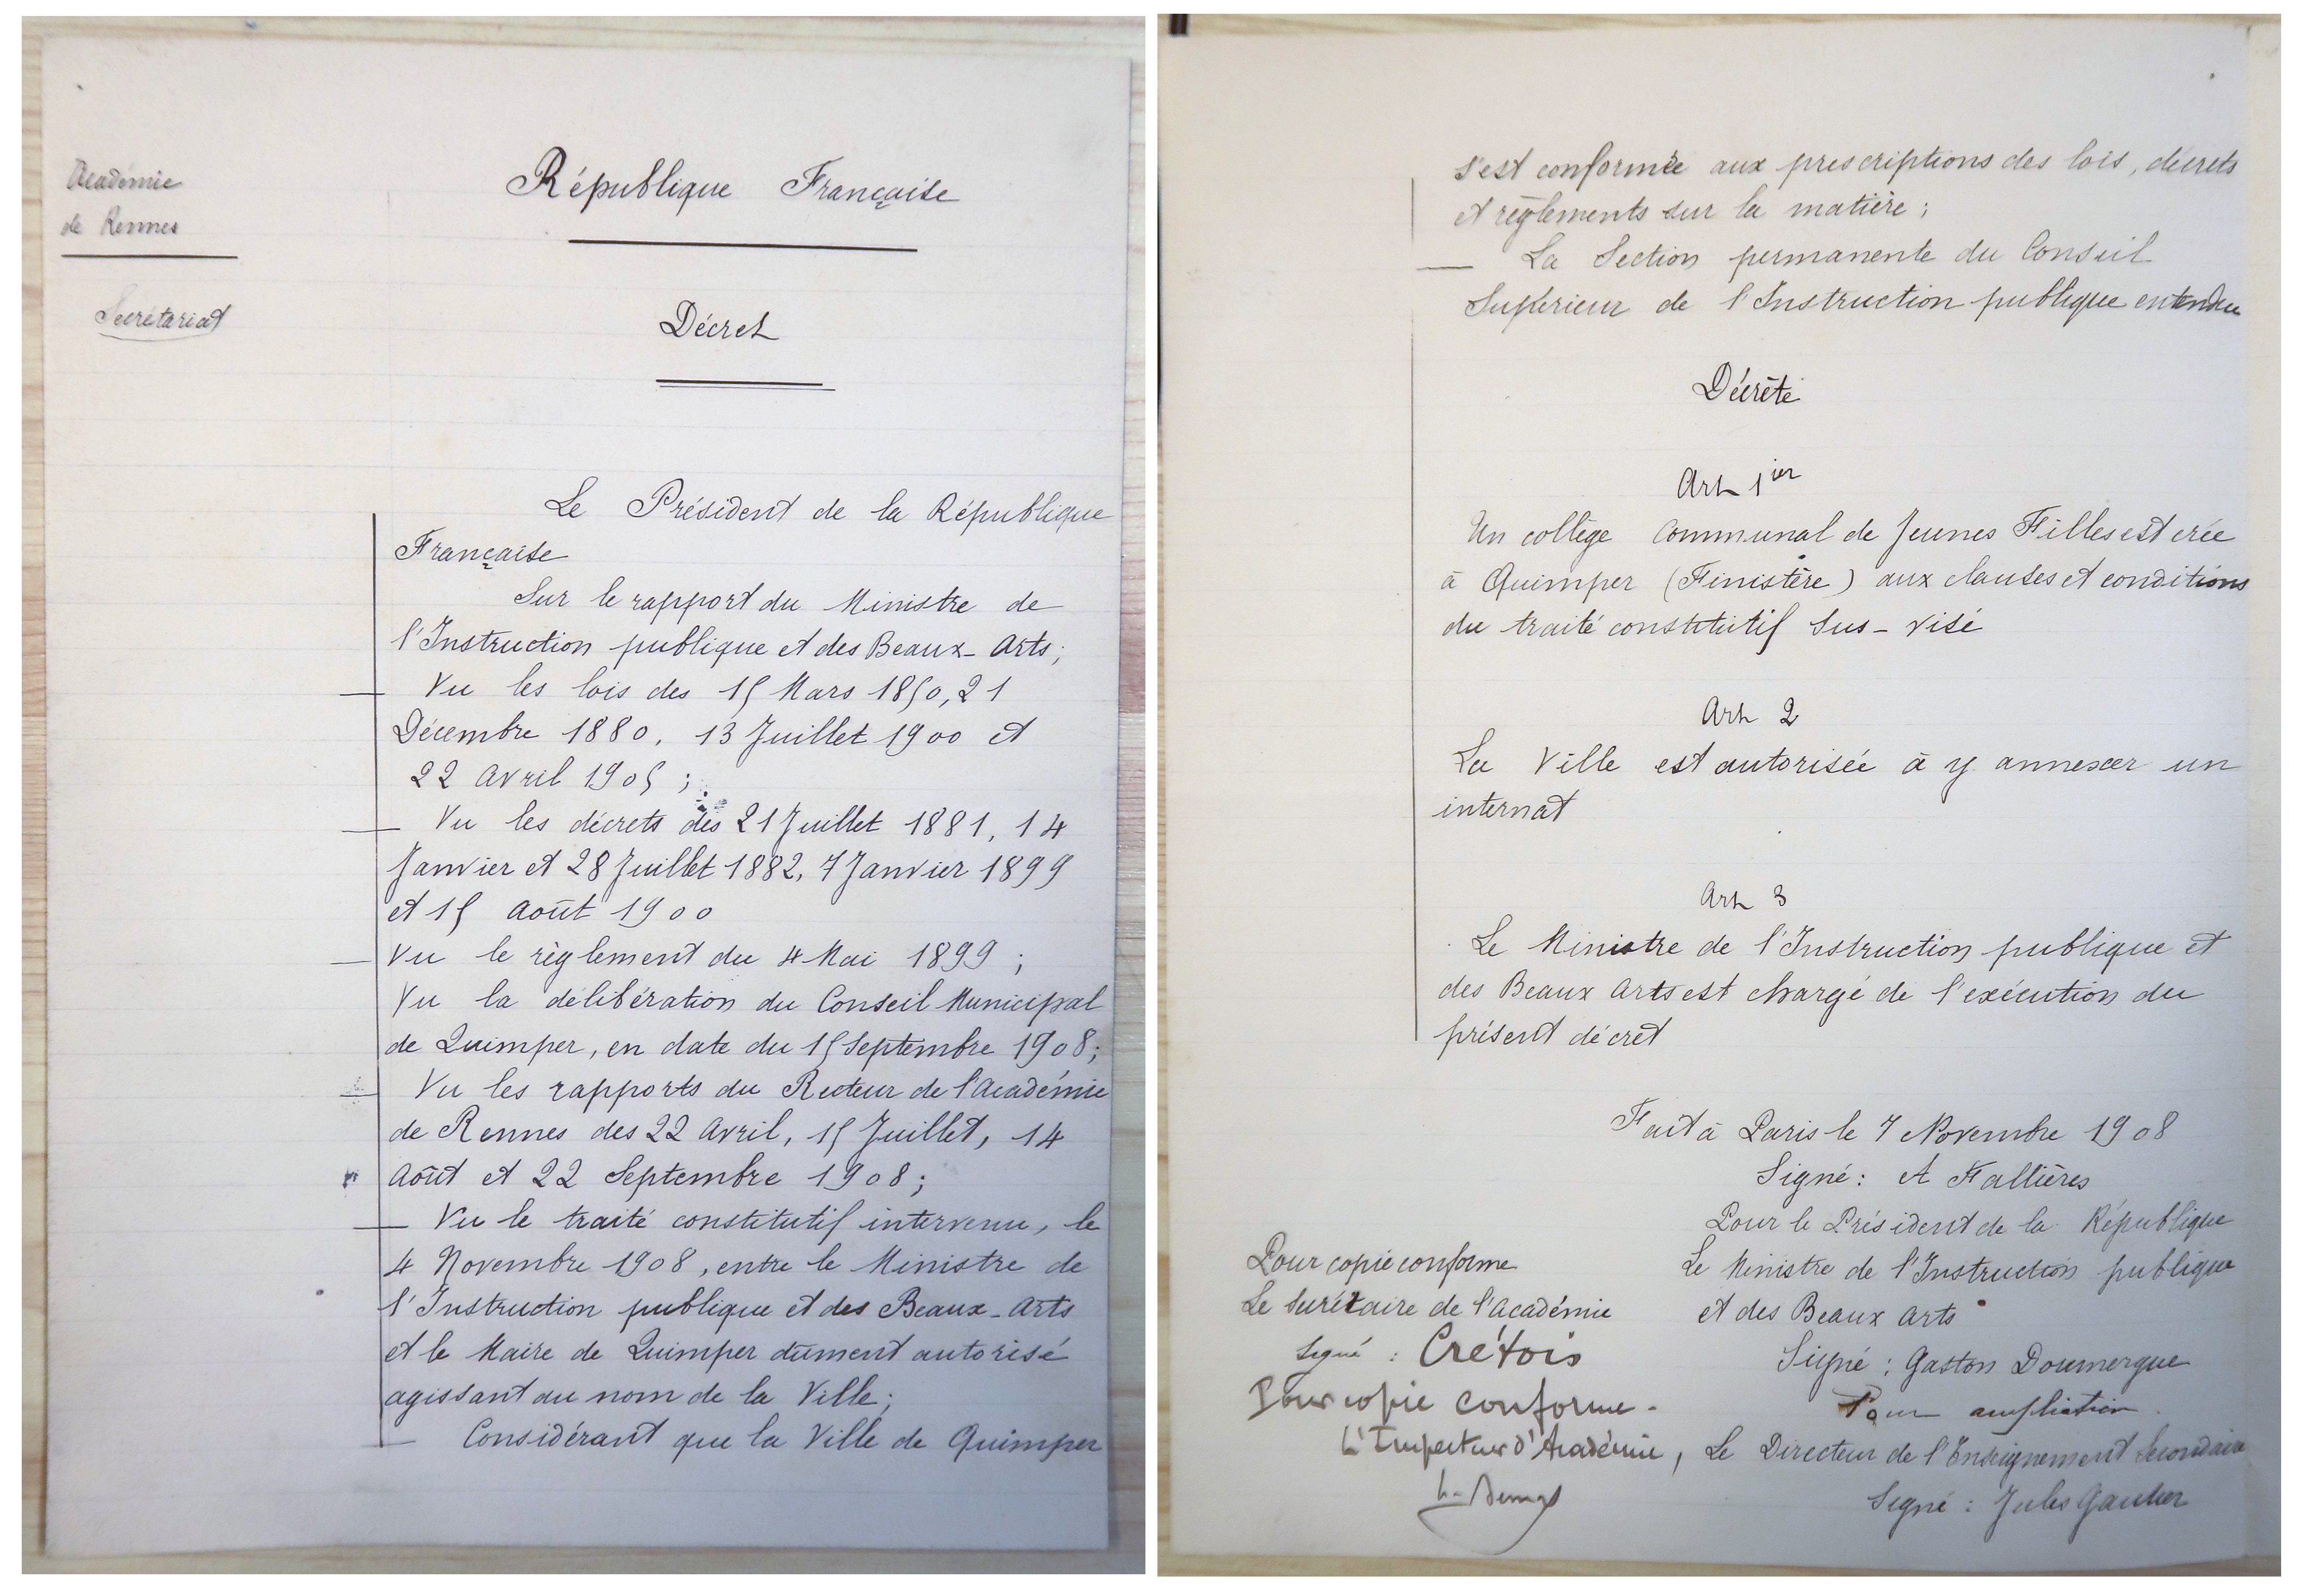 Académie
de Rennes
Secrétariat
République Française
Décret
Le Président de la République
Française
Sur le rapport du Ministre de
l'Instruction publique et des Beaux-Arts;
Vu les lois des 15 Mars 1850, 21
Décembre 1880, 13 Juillet 1900 et
22 Avril 1905;
Vu les décrets des 21 Juillet 1881, 14
Janvier et 28 Juillet 1882, 7 Janvier 1899
et 15 Août 1900
Vu le règlement du 4 Mai 1899;
Vu la délibération du Conseil Municipal
de Quimper, en date du 15 Septembre 1908;
Vu les rapports du Recteur de l'Académie
de Rennes des 22 Avril, 15 Juillet, 14
Août et 22 Septembre 1908;
Vu le traité constitutif intervenu, le
4 Novembre 1908, entre le Ministre de
l'Instruction publique et des Beaux-Arts
et le Maire de Quimper dument autorisé
agissant au nom de la Ville;
Considérant que la Ville de Quimper
s'est conformée aux prescriptions des lois, décrets
et règlements sur la matière;
La Section permanente du Conseil
Supérieur de l'Instruction publique entendue
Décrète
Art 1ier
Un collège Communal de Jeunes Filles est crée
à Quimper (Finistère) aux clauses et conditions
du traité constitutif sus-visé
Art 2
La Ville est autorisée à y annexer un
internat
Art 3
Le Ministre de l'Instruction publique et
des Beaux Arts est chargé de l'exécution du
présent décret
Fait à Paris le 7 Novembre 1908
Signé: A Fallières
Pour le Président de la République
Le Ministre de l'Instruction publique
et des Beaux Arts
Signé: Gaston Doumergue
Pour ampliation.
Le Directeur de l'Enseignement Secondaire
Signé: Jules Gautier
Pour copie conforme
Le Secrétaire de l'Académie
Signé: Crétois
Pour copie conforme.
L'Inspecteur d'Académie,